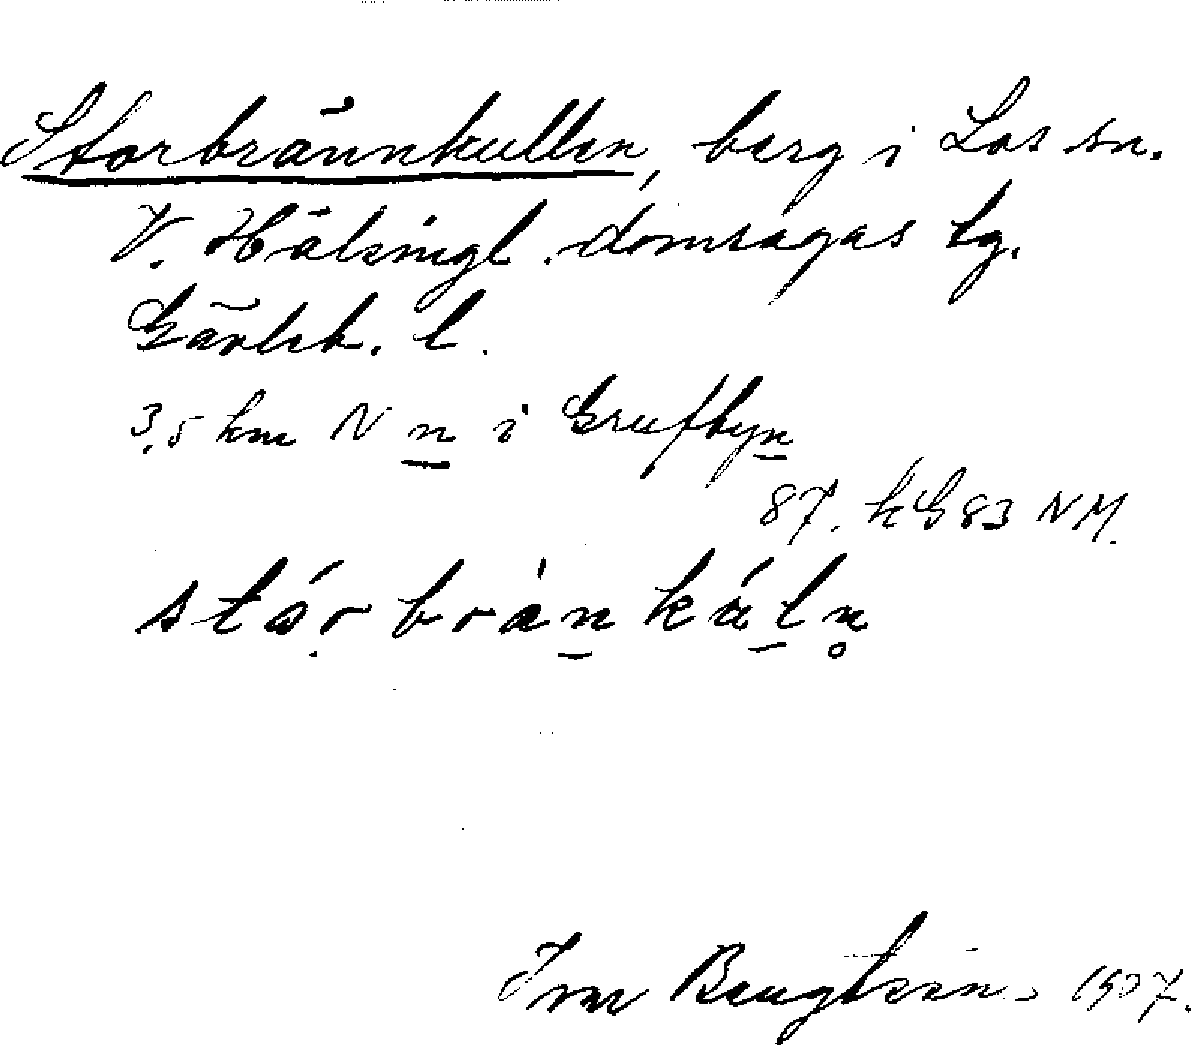 Storbrännkullen, berg i Los sn.
V. Hälsingl. domsagas tg.
Gävleb. l.
3,5 km N n i Grufbyn
87. kG 83 NM.
stór brànkáln̥
Ivar Bengtson 1937.